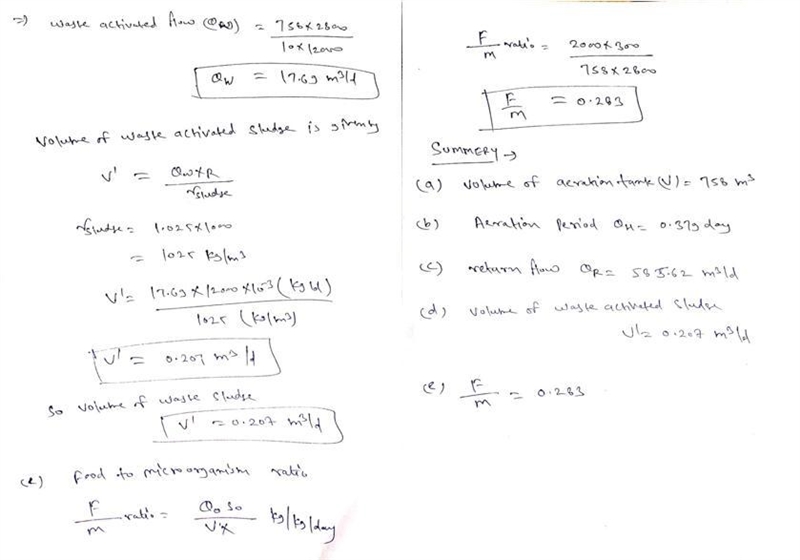 =) Waste activated flow (QW) = 758×2800 / 10×12000
QW = 17.69 m³/d
Volume of waste activated sludge is given by
V' = QW×R / γsludge
γsludge = 1.025×1000
= 1025 kg/m³
V' = 17.69×12000×10⁻³ (kg/d) / 1025 (kg/m³)
V' = 0.207 m³/d
So volume of waste sludge
V' = 0.207 m³/d
(e) Food to microorganism ratio
F/m ratio = Q₀ S₀ / VX kg/kg/day
F/m ratio = 2000×300 / 758×2800
F/m = 0.283
SUMMERY →
(a) Volume of aeration tank (V) = 758 m³
(b) Aeration Period θH = 0.379 day
(c) return flow QR = 585.62 m³/d
(d) Volume of waste activated sludge
V' = 0.207 m³/d
(e) F/m = 0.283